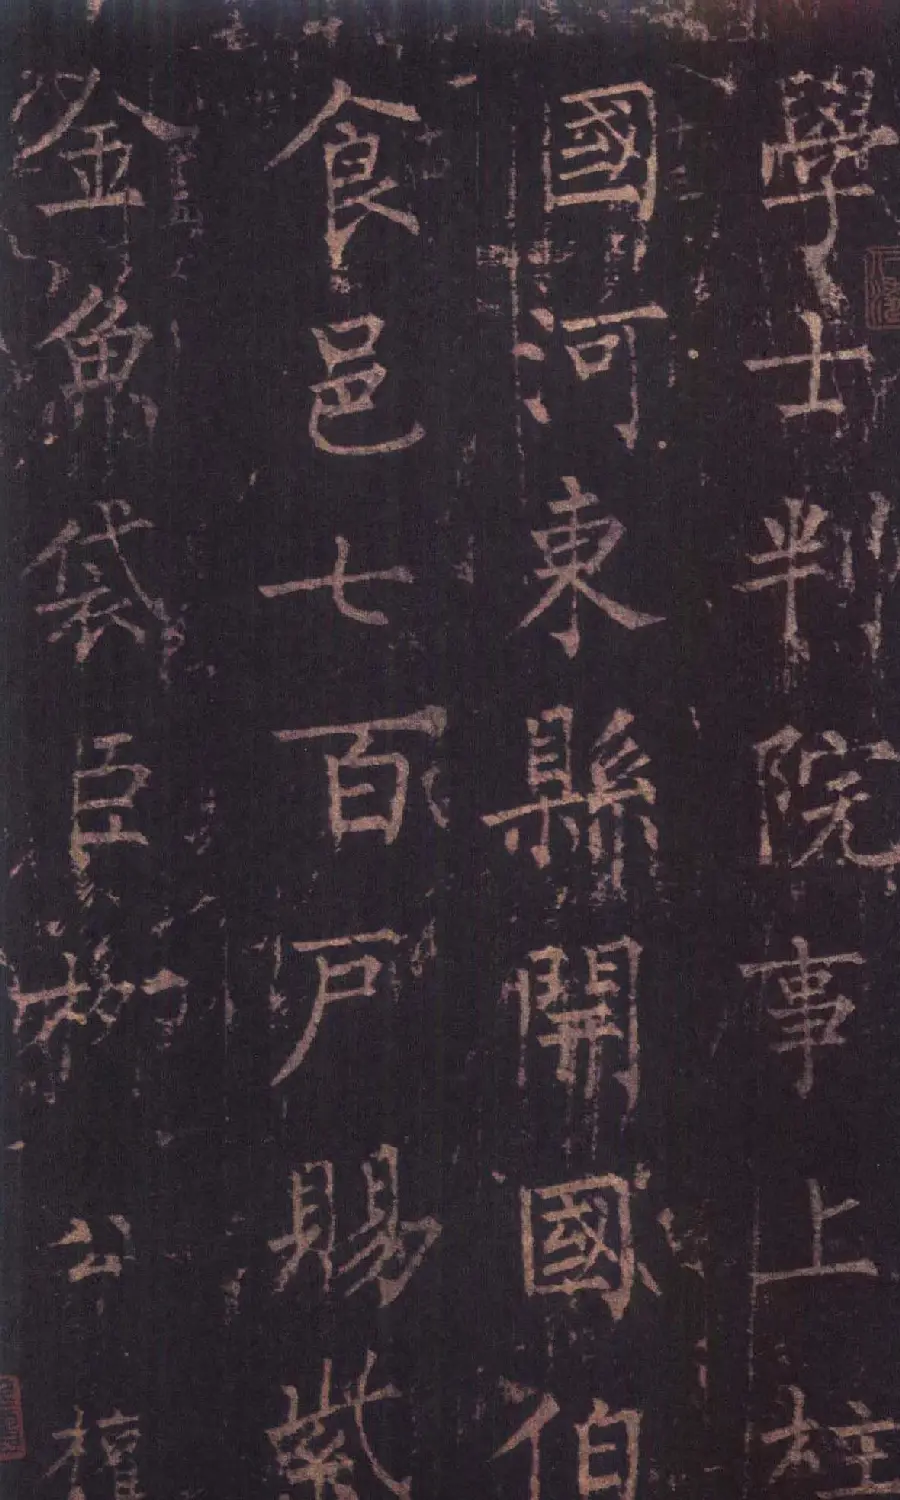 學士判院事上柱
國河東縣開國伯
食邑七百戶賜紫
金魚袋臣柳公權